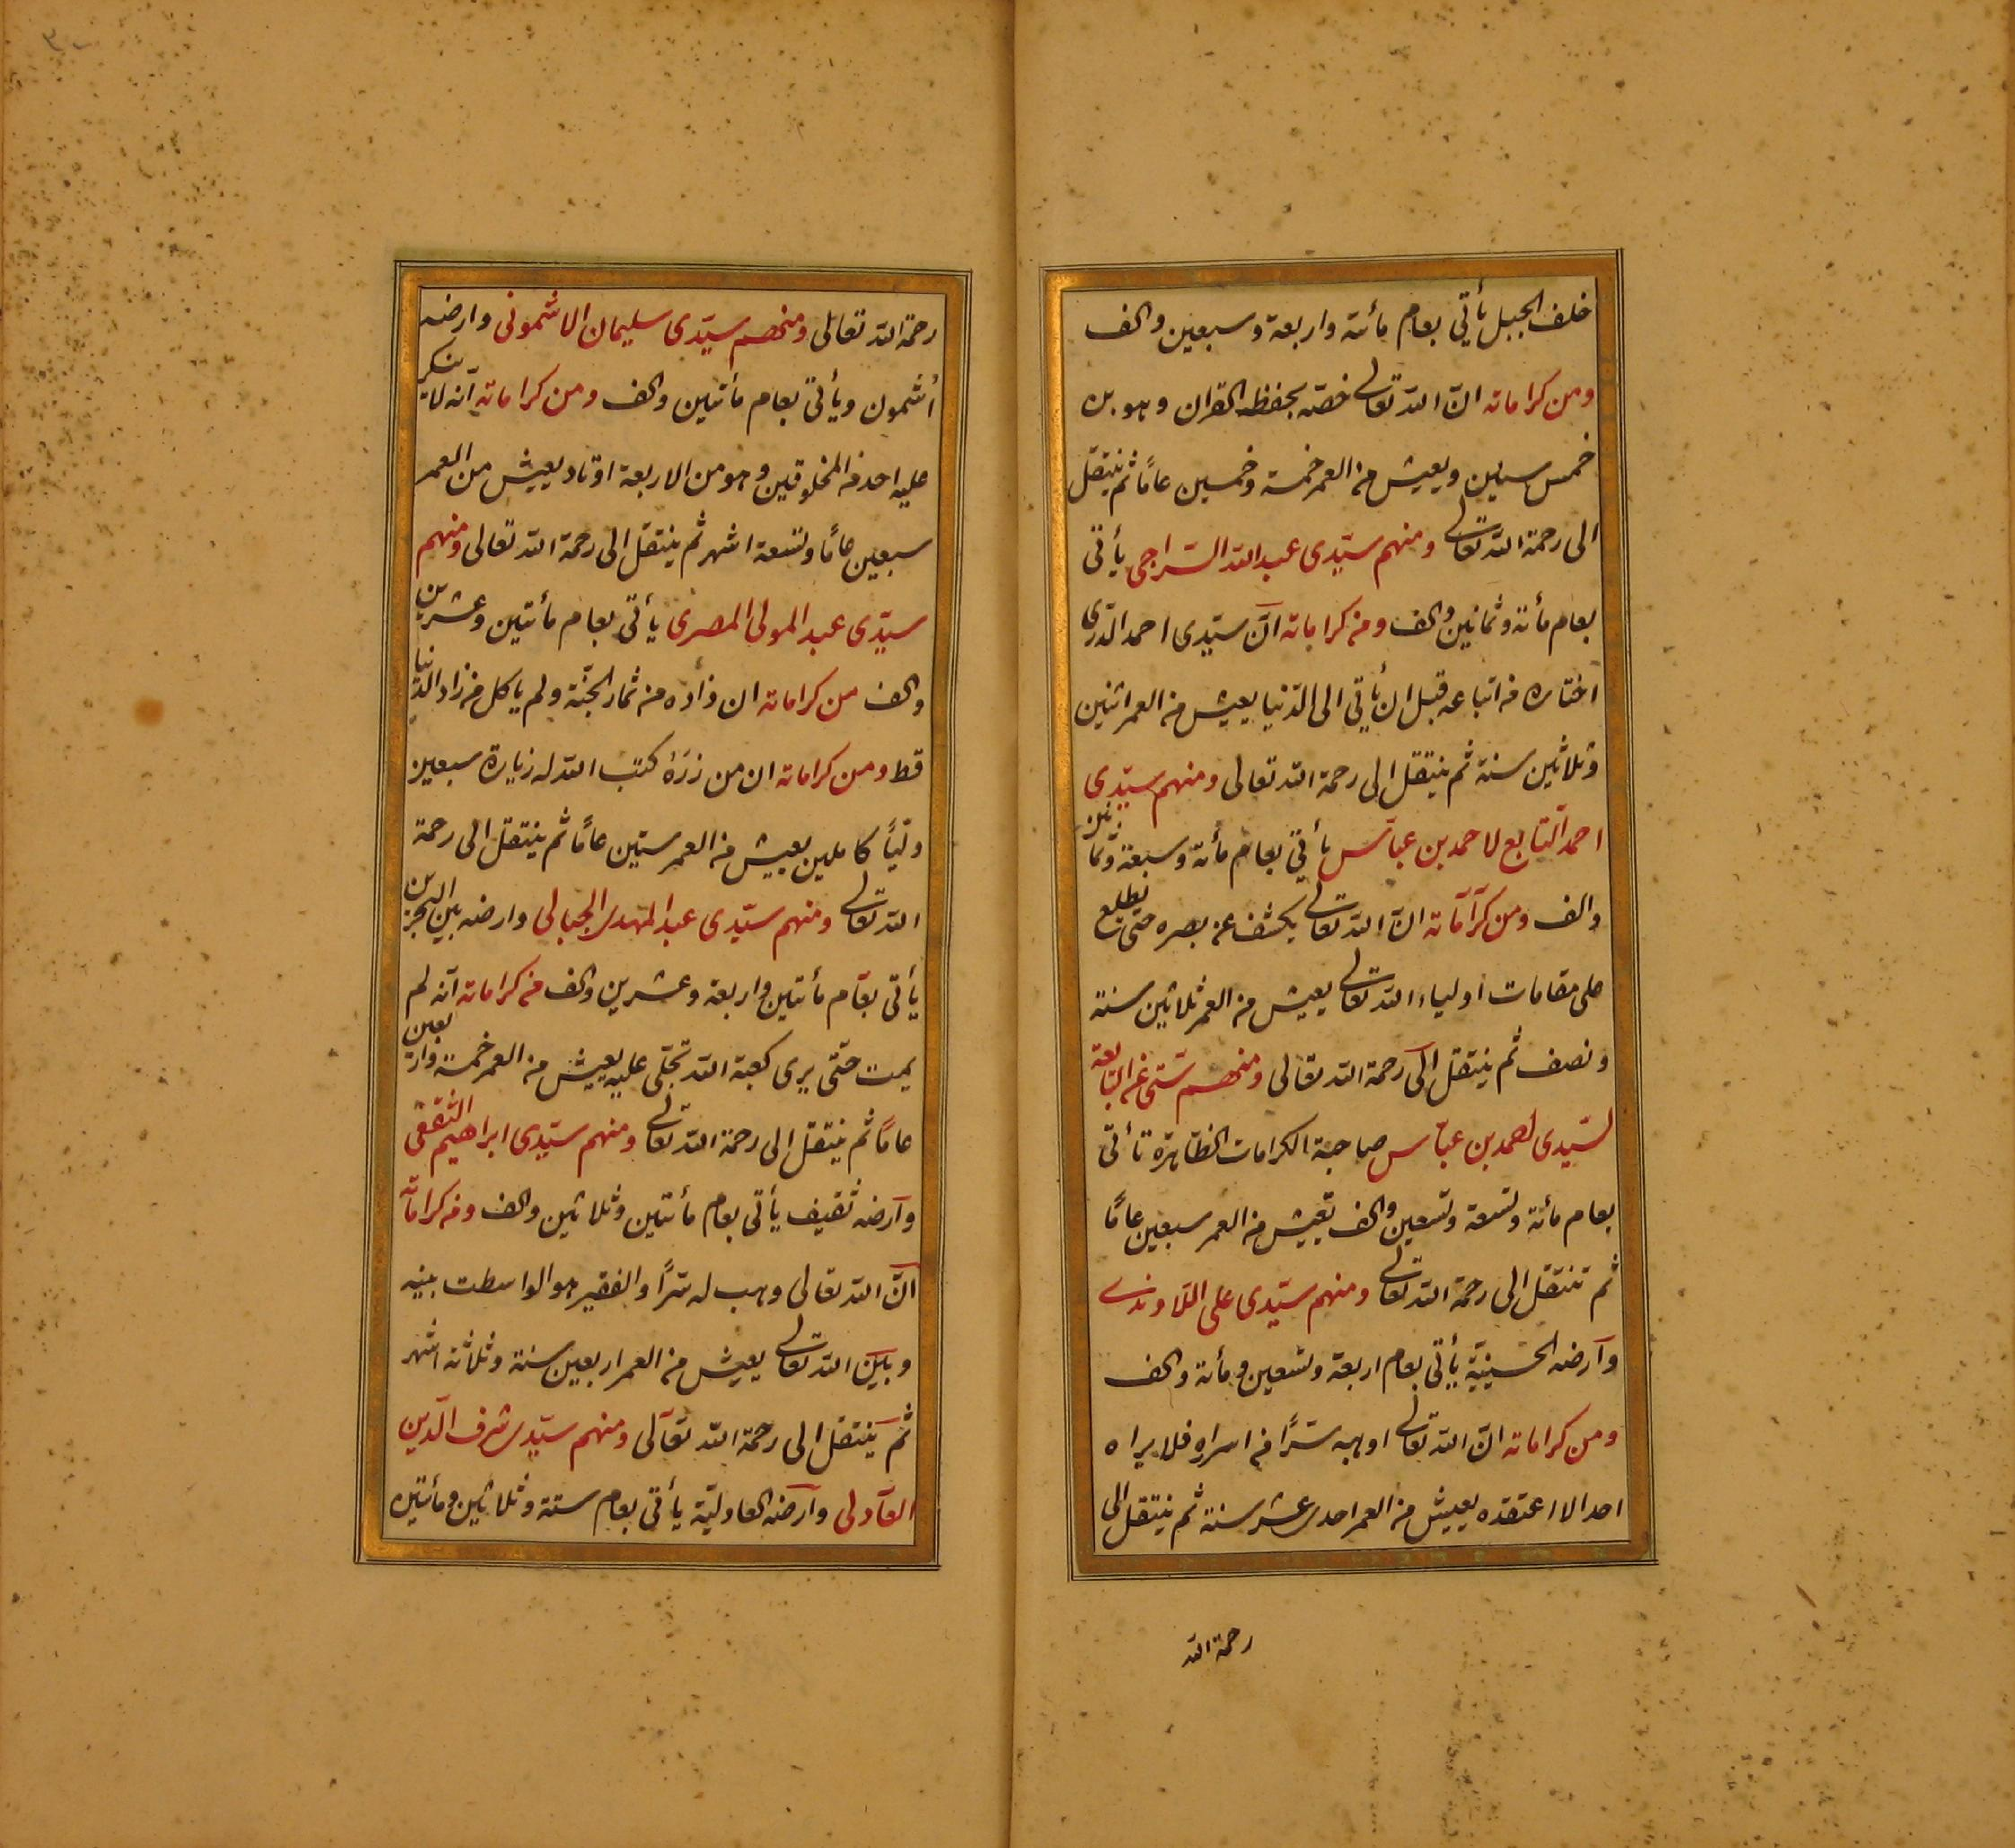 خلف الجبل يأتي بعام مأئة واربعة وسبعين والف
ومن كراماته انّ الله تعالى خصّه بحفظ القران وهو بن
خمس سنين ويعيش من العمر خمسة وخمسين عامًا ثم ينتقل
الى رحمة الله تعالى ومنهم سيّدى عبد الله السّراجى يأتى
بعام مأئة وثمانين والف ومن كراماته انّ سيّدى احمد الدّرى
اختاره من اتباعه قبل ان يأتي الى الدّنيا يعيش من العمر اثنين
وثلاثين سنة ثم ينتقل الى رحمة الله تعالى ومنهم سيّدى
احمد التابع لاحمد بن عبّاس يأتي بعام مأئة وسبعة وثمانين
والف ومن كراماته انّ الله تعالى يكشف عن بصره حتى يطلع
على مقامات اولياء الله تعالى يعيش من العمر ثلاثين سنة
ونصف ثم ينتقل الى رحمة الله تعالى ومنهم ستى التابعة
لسيّدى احمد بن عبّاس صاحبة الكرامات الظاهرة تأتى
بعام مأئة وتسعة وتسعين والف تعيش من العمر سبعين عامًا
ثم تنتقل الى رحمة الله تعالى ومنهم سيّدى على اللاوندى
وارضه الحسينية يأتى بعام اربعة وتسعين ومأئة والف
ومن كراماته انّ الله تعالى اوهبه سرًّا من اسراره فلا يراه
احد الا اعتقده يعيش من العمر احدى عشر سنة ثم ينتقل الى
رحمة الله
رحمة الله تعالى ومنهم سيّدى سليمان الاشمونى وارضه
أشمون ويأتى بعام مأئتين والف ومن كراماته انّه لا ينكر
عليه احد من المخلوقين وهو من الاربعة اوتاد يعيش من العمر
سبعين عامًا وتسعة اشهر ثم ينتقل الى رحمة الله تعالى ومنهم
سيّدى عبد المولى المصرى يأتى بعام مأئتين وعشرين
والف من كراماته ان زاده من ثمار الجنّة ولم ياكل من زاد الدّنيا
قط ومن كراماته ان من زرَهُ كتب الله له زيارة سبعين
وليًّا كاملين يعيش من العمر ستين عامًا ثم ينتقل الى رحمة
الله تعالى ومنهم سيّدى عبد المهدى الجبالى وارضه بين البحرين
يأتى بعام مأئتين واربعة وعشرين والف من كراماته انّه لم
يمت حتّى يرى كعبة الله تجلى عليه يعيش من العمر خمسة واربعين
عامًا ثم ينتقل الى رحمة الله تعالى ومنهم سيّدى ابراهيم الثقفى
وارضه ثقيف يأتى بعام مأئتين وثلاثين والف ومن كراماته
انّ الله تعالى وهب له سرًّا والفقير هو الواسطت بينه
وبين الله تعالى يعيش من العمر اربعين سنة وثلاثة اشهر
ثم ينتقل الى رحمة الله تعالى ومنهم سيّدى شرف الدّين
العادلى وارضه العادليّة يأتى بعام ستة وثلاثين ومأئتين